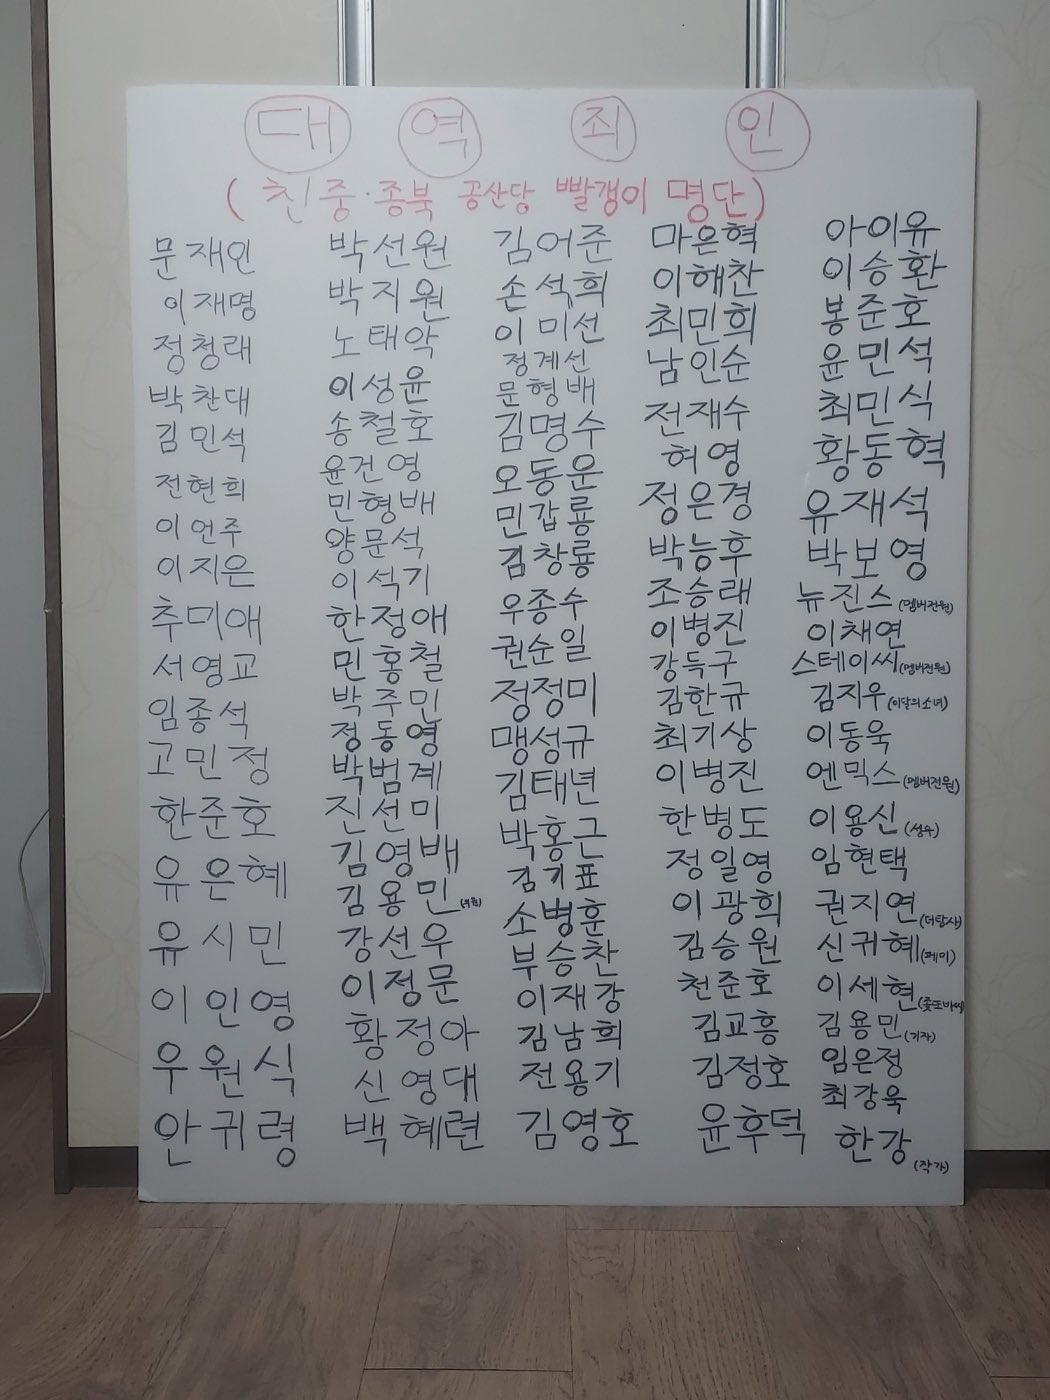 대 역 죄 인
(친중·종북 공산당 빨갱이 명단)
문재인
이재명
정청래
박찬대
김민석
전현희
이언주
이지은
추미애
서영교
임종석
고민정
한준호
유은혜
유시민
이인영
우원식
안귀령
박선원
박지원
노태악
이성윤
송철호
윤건영
민형배
양문석
이석기
한정애
민홍철
박주민
정동영
박범계
진선미
김영배
김용민(의원)
강선우
이정문
황정아
신영대
백혜련
김어준
손석희
이미선
정계선
문형배
김명수
오동운
민갑룡
김창룡
우종수
권순일
정정미
맹성규
김태년
박홍근
김기표
소병훈
부승찬
이재강
김남희
전용기
김영호
마은혁
이해찬
최민희
남인순
전재수
허영
정은경
박능후
조승래
이병진
강득구
김한규
최기상
이병진
한병도
정일영
이광희
김승원
천준호
김교흥
김정호
윤후덕
아이유
이승환
봉준호
윤민석
최민식
황동혁
유재석
박보영
뉴진스(멤버전원)
이채연
스테이씨(멤버전원)
김지우(이달의소녀)
이동욱
엔믹스(멤버전원)
이용신(성우)
임현택
권지연(더탐사)
신귀혜(페미)
이세현(꽃또바쎄)
김용민(기자)
임은정
최강욱
한강(작가)